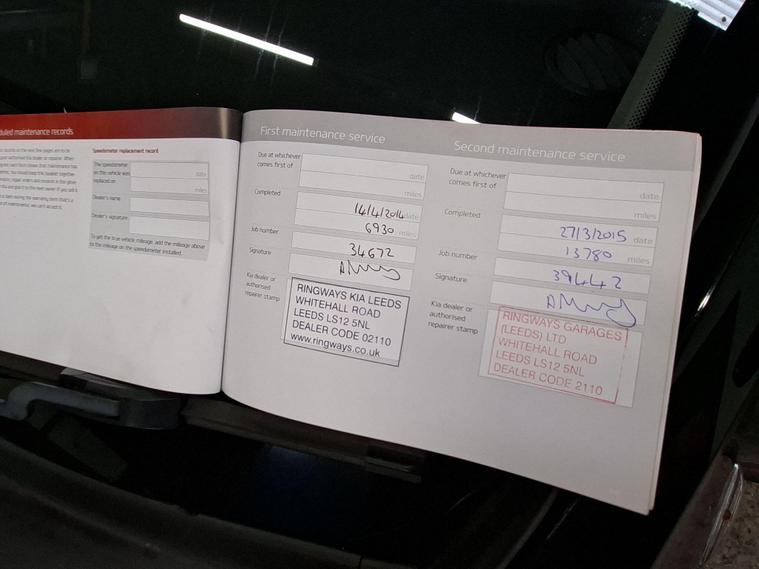 duled maintenance records
Speedometer replacement record
The speedometer
on this vehicle was
replaced on
date
miles
Dealer's name
Dealer's signature
To get the true vehicle mileage, add the mileage above
to the mileage on the speedometer installed.
First maintenance service
Due at whichever
comes first of
date
miles
Completed
14/4/2014 date
6930 miles
Job number
34672
Signature
Kia dealer or
authorised
repairer stamp
RINGWAYS KIA LEEDS
WHITEHALL ROAD
LEEDS LS12 5NL
DEALER CODE 02110
www.ringways.co.uk
Second maintenance service
Due at whichever
comes first of
date
miles
Completed
27/3/2015 date
13780 miles
Job number
39442
Signature
Kia dealer or
authorised
repairer stamp
RINGWAYS GARAGES
(LEEDS) LTD
WHITEHALL ROAD
LEEDS LS12 5NL
DEALER CODE 2110